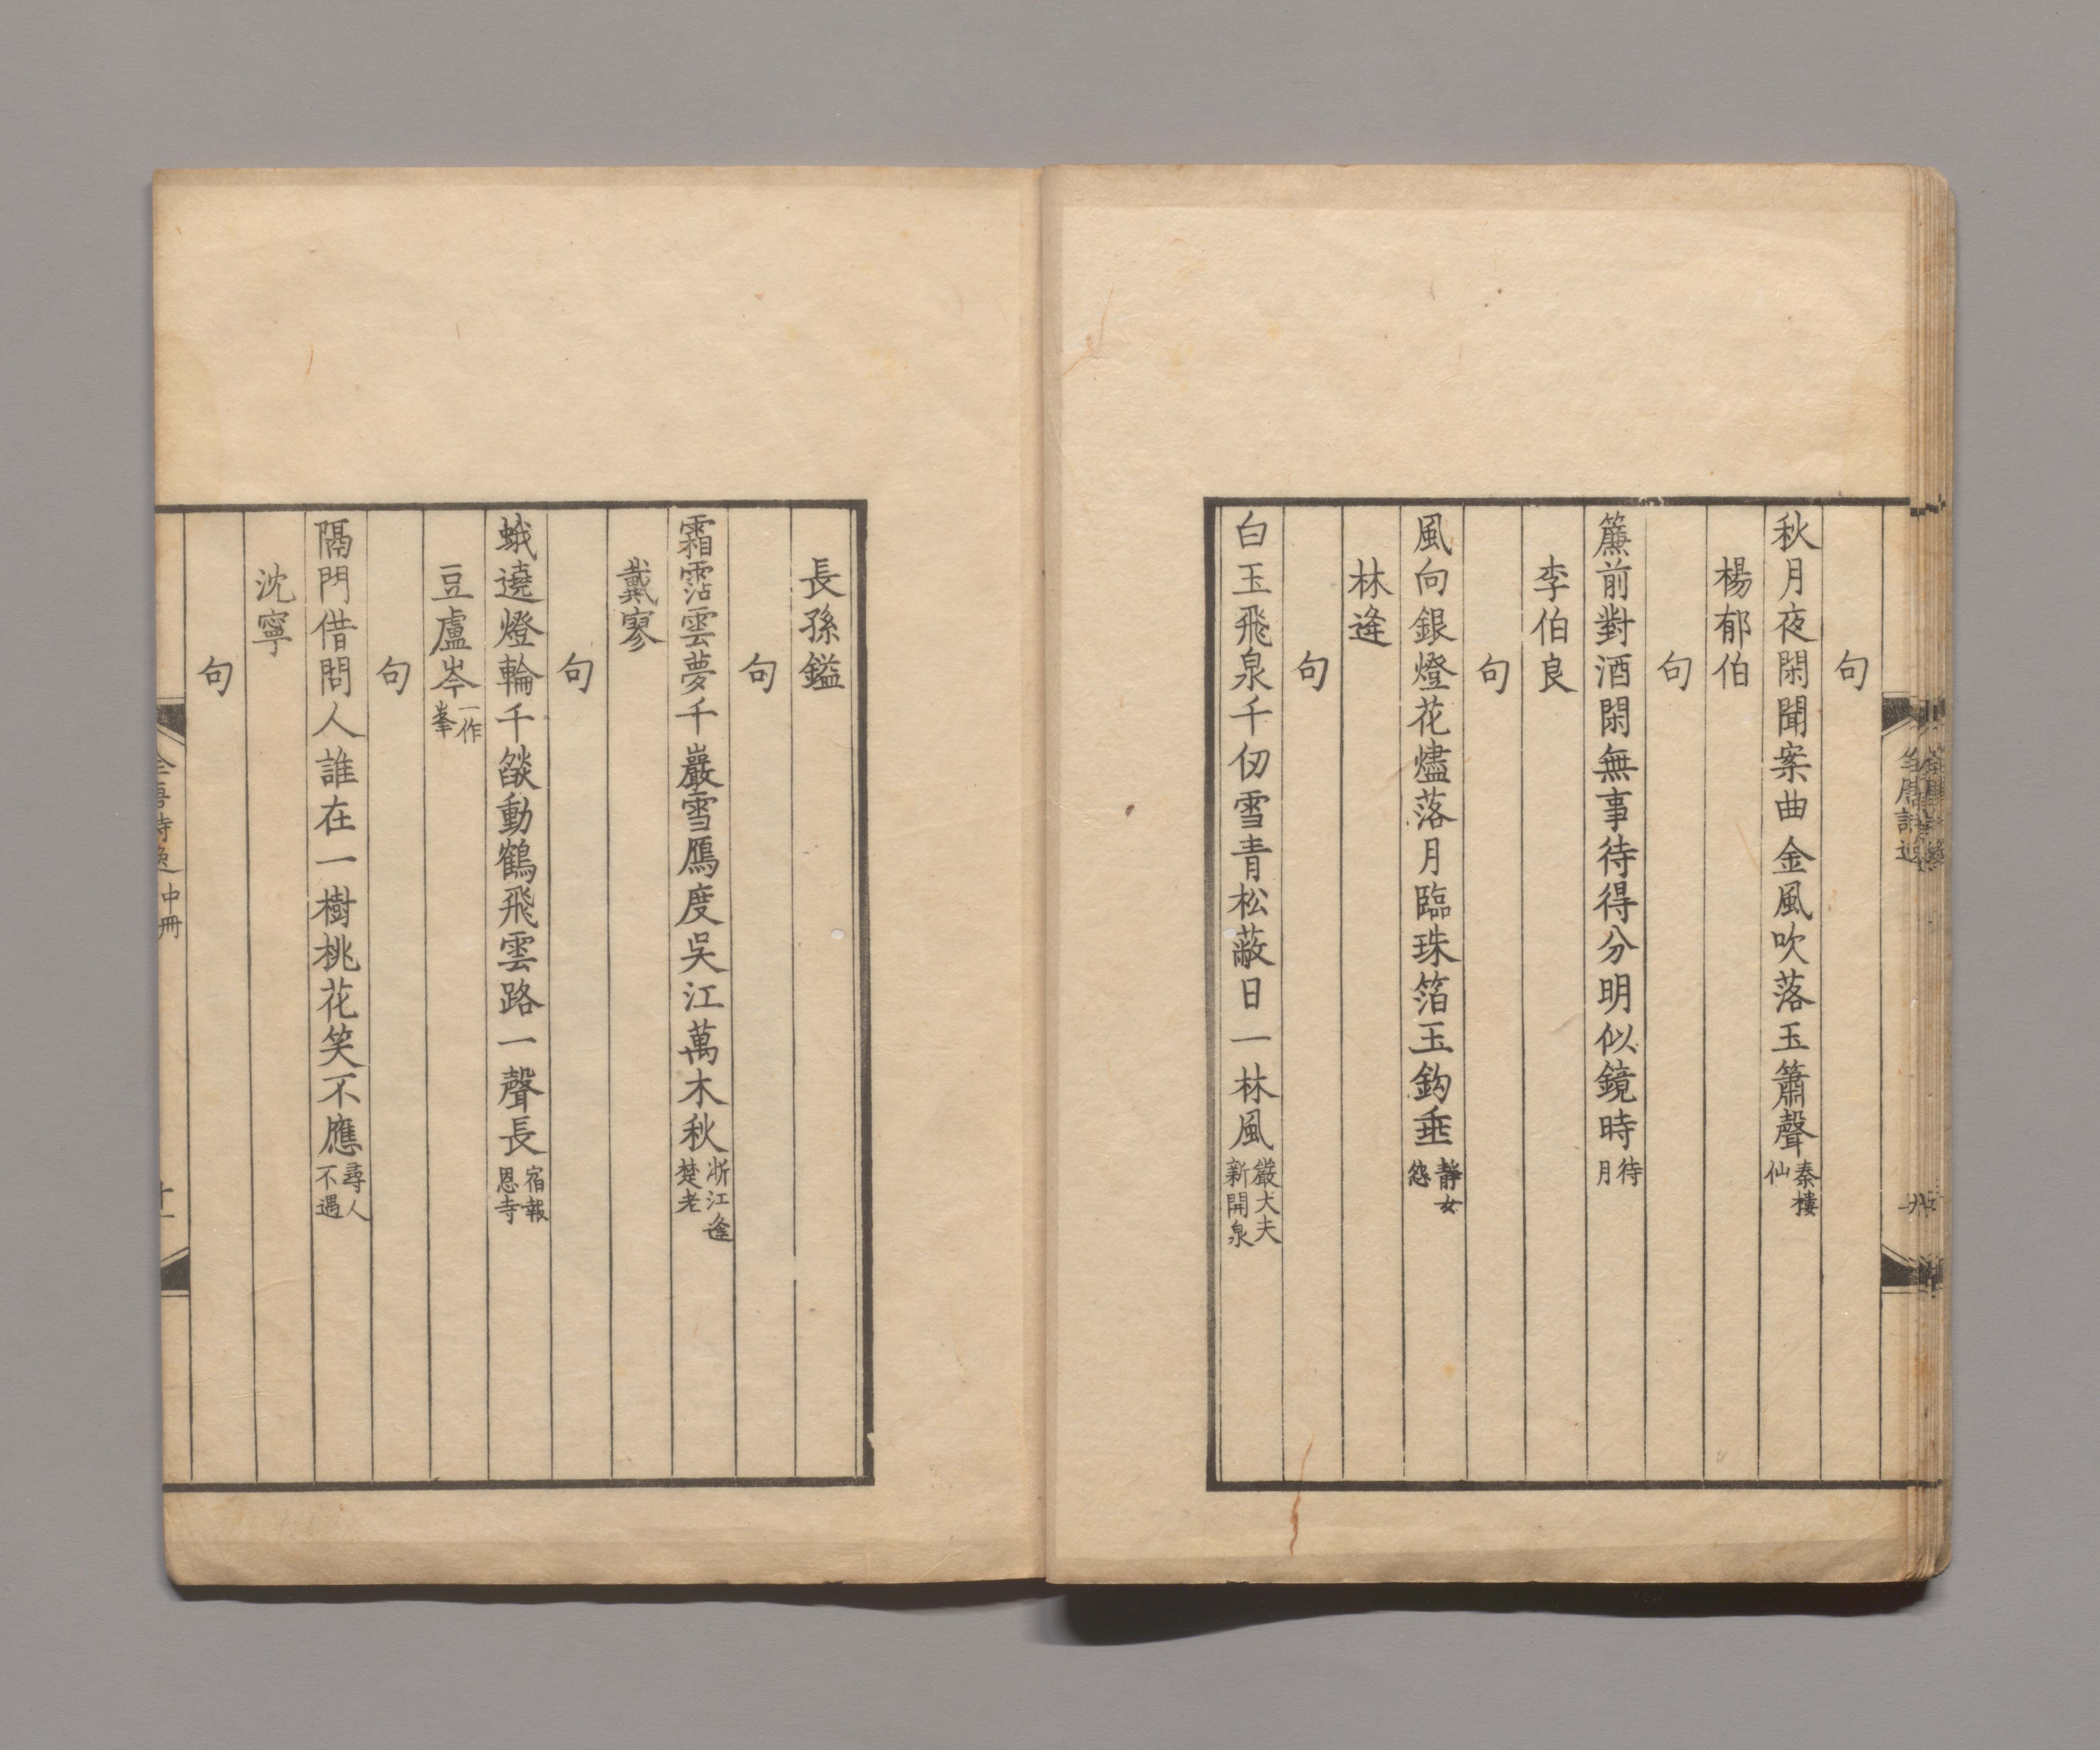 句
秋月夜閑聞案曲金風吹落玉簫聲秦樓仙
楊郁伯
句
簾前對酒閑無事待得分明似鏡時待月
李伯良
句
風向銀燈花燼落月臨珠箔玉鈎垂靜女怨
林逢
句
白玉飛泉千仞雪青松蔽日一林風嚴大夫新開泉
長孫鎰
句
霜霑雲夢千巖雪鴈度吳江萬木秋浙江逢楚老
戴寥
句
蛾遶燈輪千燄動鶴飛雲路一聲長宿報恩寺
豆盧岑一作峯
句
隔門借問人誰在一樹桃花笑不應尋人不遇
沈寧
句
全唐詩逸 中冊